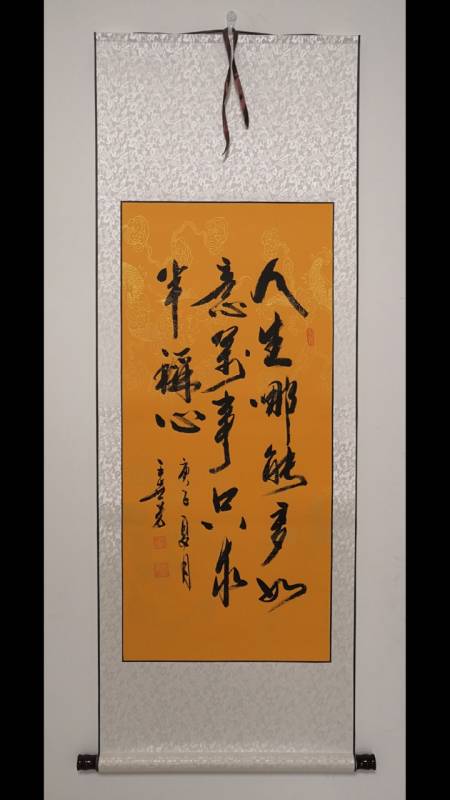 人生哪能多如
意万事只求
半称心
庚子夏月